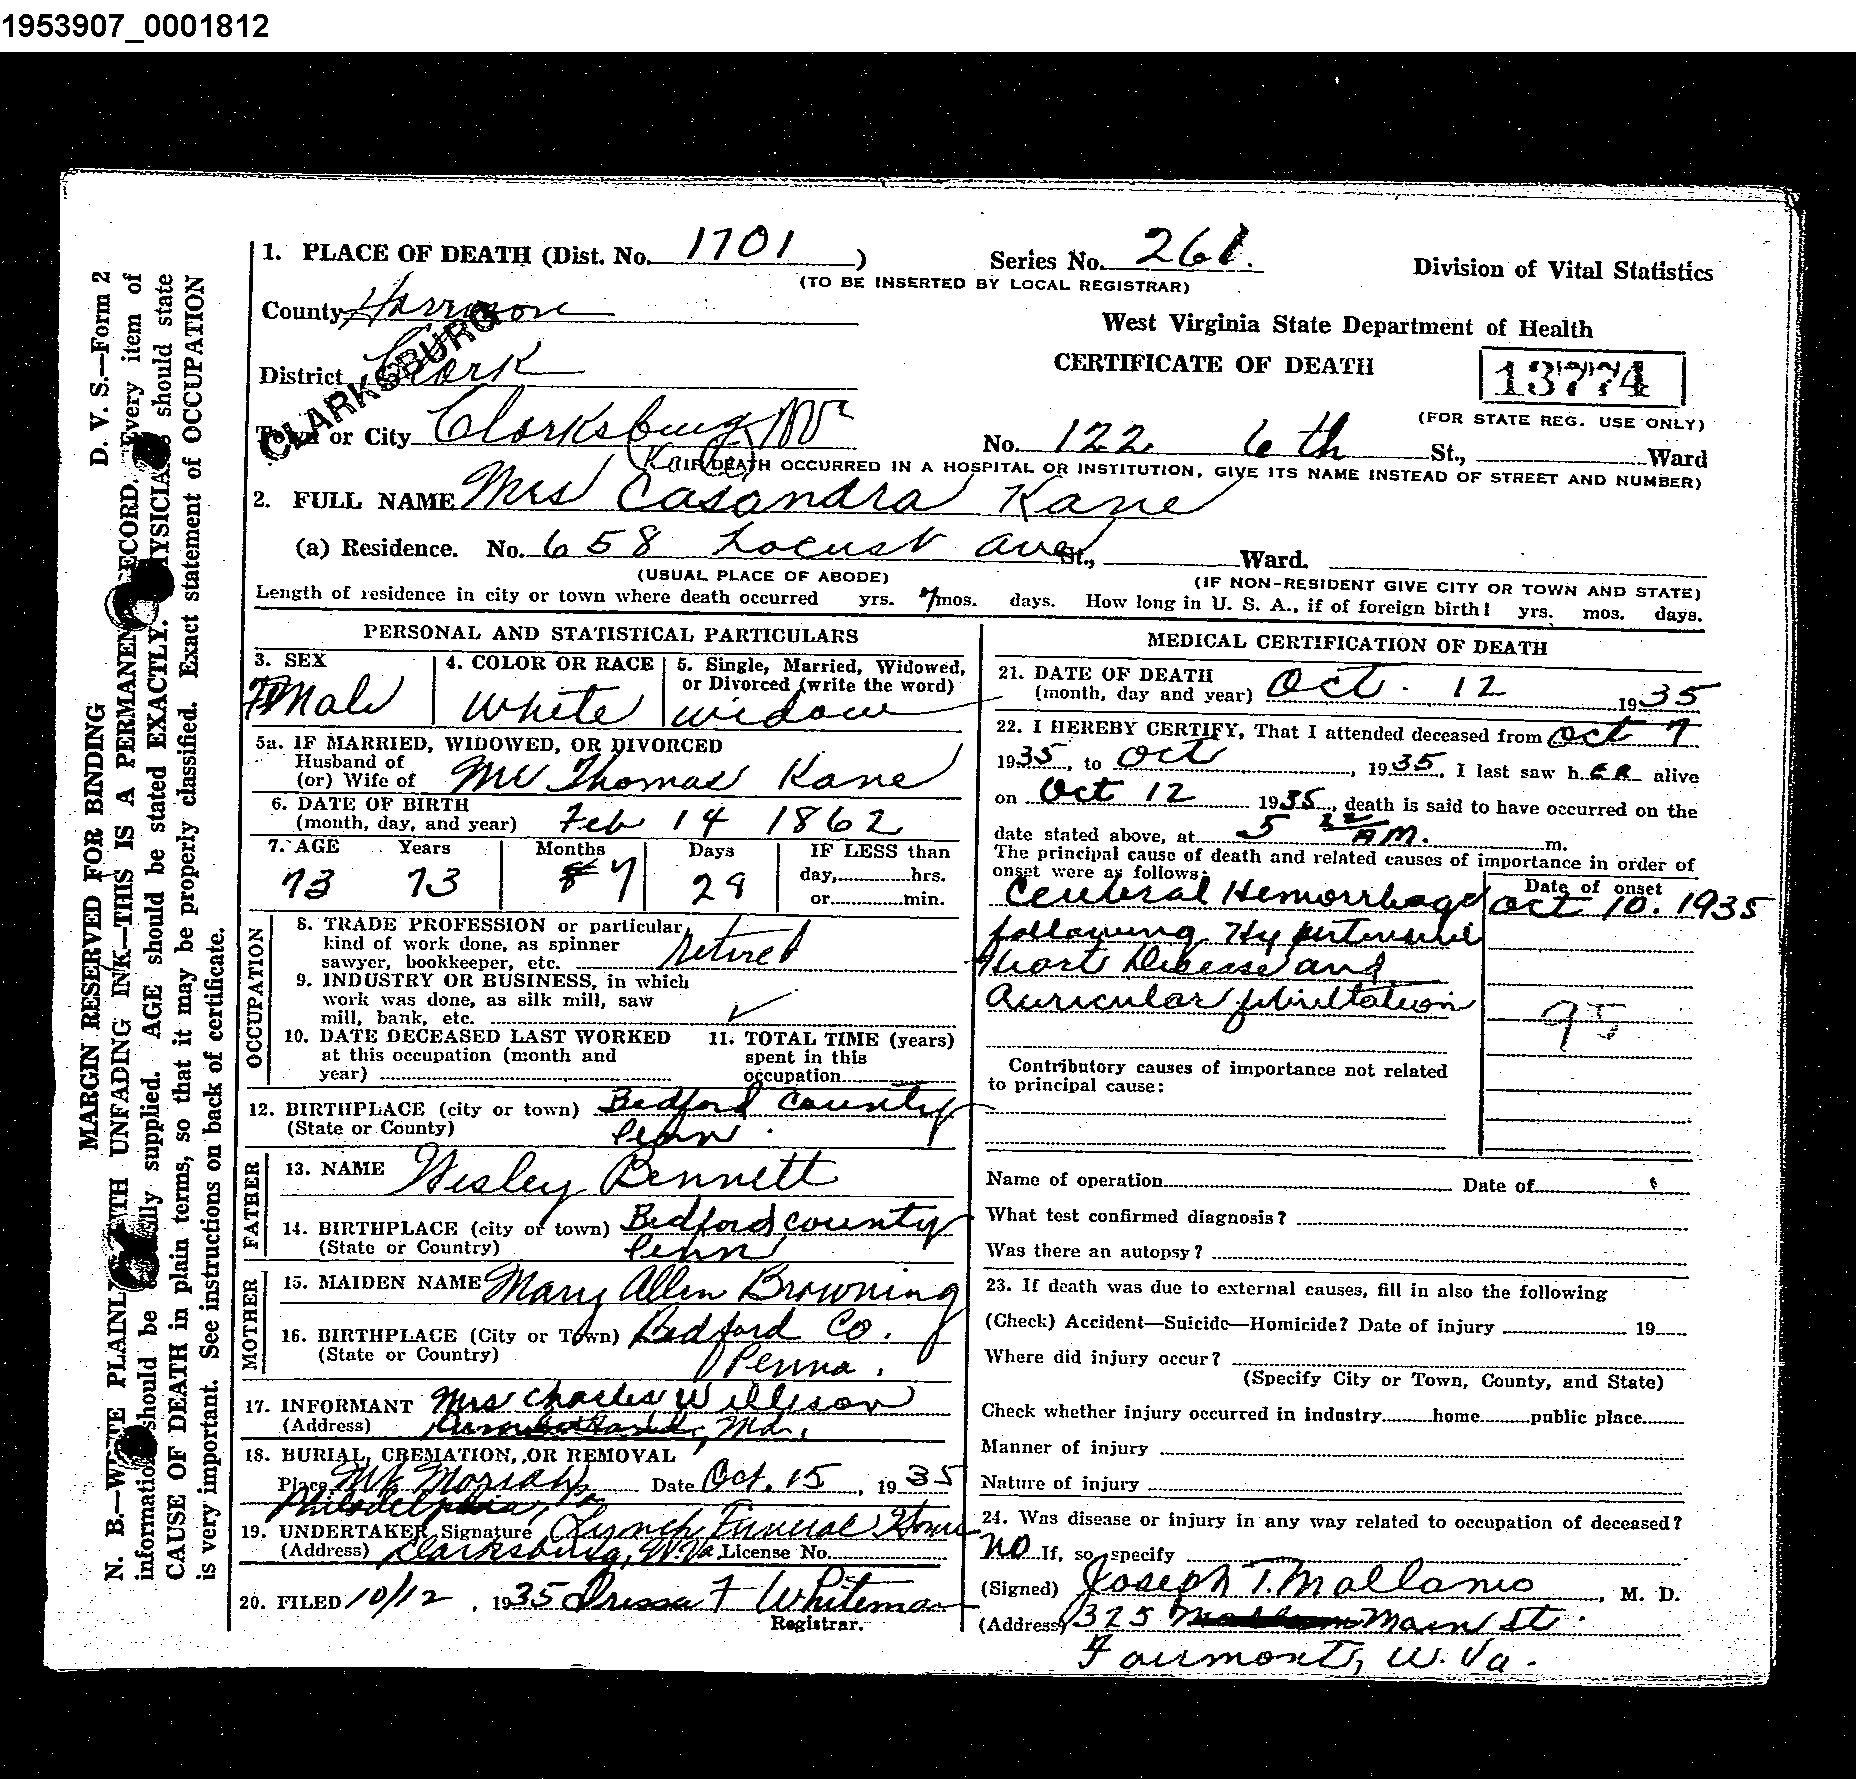 1953907_0001812
D. V. S.—Form 2
MARGIN RESERVED FOR BINDING
N. B.—WRITE PLAINLY WITH UNFADING INK—THIS IS A PERMANENT RECORD. Every item of
information should be carefully supplied. AGE should be stated EXACTLY. PHYSICIANS should state
CAUSE OF DEATH in plain terms, so that it may be properly classified. Exact statement of OCCUPATION
is very important. See instructions on back of certificate.
1. PLACE OF DEATH (Dist. No. 1701 ) Series No. 261. Division of Vital Statistics
(TO BE INSERTED BY LOCAL REGISTRAR)
County Harrison
West Virginia State Department of Health
CERTIFICATE OF DEATH 13774
(FOR STATE REG. USE ONLY)
District Clark
CLARKSBURG
Town or City Clarksburg No. 122 6th St., Ward
(IF DEATH OCCURRED IN A HOSPITAL OR INSTITUTION, GIVE ITS NAME INSTEAD OF STREET AND NUMBER)
2. FULL NAME Mrs Casandra Kane
(a) Residence. No. 658 Locust ave St., Ward.
(USUAL PLACE OF ABODE) (IF NON-RESIDENT GIVE CITY OR TOWN AND STATE)
Length of residence in city or town where death occurred yrs. 7 mos. days. How long in U. S. A., if of foreign birth? yrs. mos. days.
PERSONAL AND STATISTICAL PARTICULARS
3. SEX 4. COLOR OR RACE 5. Single, Married, Widowed,
or Divorced (write the word)
White widow
5a. IF MARRIED, WIDOWED, OR DIVORCED
Husband of
(or) Wife of Mr Thomas Kane
6. DATE OF BIRTH
(month, day, and year) Feb 14 1862
7. AGE Years Months Days IF LESS than
73 73 7 28 day,hrs.
or min.
OCCUPATION
8. TRADE PROFESSION or particular
kind of work done, as spinner
sawyer, bookkeeper, etc. retired
9. INDUSTRY OR BUSINESS, in which
work was done, as silk mill, saw
mill, bank, etc. ✓
10. DATE DECEASED LAST WORKED
at this occupation (month and
year)
11. TOTAL TIME (years)
spent in this
occupation
12. BIRTHPLACE (city or town) Bedford County
(State or County) Penn.
FATHER
13. NAME Wesley Bennett
14. BIRTHPLACE (city or town) Bedford county
(State or Country) Penn
MOTHER
15. MAIDEN NAME Mary Allen Browning
16. BIRTHPLACE (City or Town) Bedford Co.
(State or Country) Penna.
17. INFORMANT Mrs Charles Willison
(Address) Md.
18. BURIAL, CREMATION, OR REMOVAL
Place Mt Moriah Date Oct. 15, 1935
Philadelphia, Pa
19. UNDERTAKER Signature Lynch Funeral Home
(Address) Clarksburg, W. Va. License No.
20. FILED 10/12, 1935 F Whiteman
Registrar.
MEDICAL CERTIFICATION OF DEATH
21. DATE OF DEATH
(month, day and year) Oct. 12 1935
22. I HEREBY CERTIFY, That I attended deceased from Oct 7
1935, to Oct, 1935, I last saw her alive
on Oct 12 1935, death is said to have occurred on the
date stated above, at 5 22 AM. m.
The principal cause of death and related causes of importance in order of
onset were as follows: Date of onset
Cerebral Hemorrhage Oct 10. 1935
following Hypertensive
Heart Disease and
Auricular fibrillation
95
Contributory causes of importance not related
to principal cause:
Name of operation Date of
What test confirmed diagnosis?
Was there an autopsy?
23. If death was due to external causes, fill in also the following
(Check) Accident—Suicide—Homicide? Date of injury 19
Where did injury occur?
(Specify City or Town, County, and State)
Check whether injury occurred in industry home public place
Manner of injury
Nature of injury
24. Was disease or injury in any way related to occupation of deceased?
NO If, so specify
(Signed) Joseph T. Mallamo, M. D.
(Address) 325 Main St.
Fairmont, W. Va.